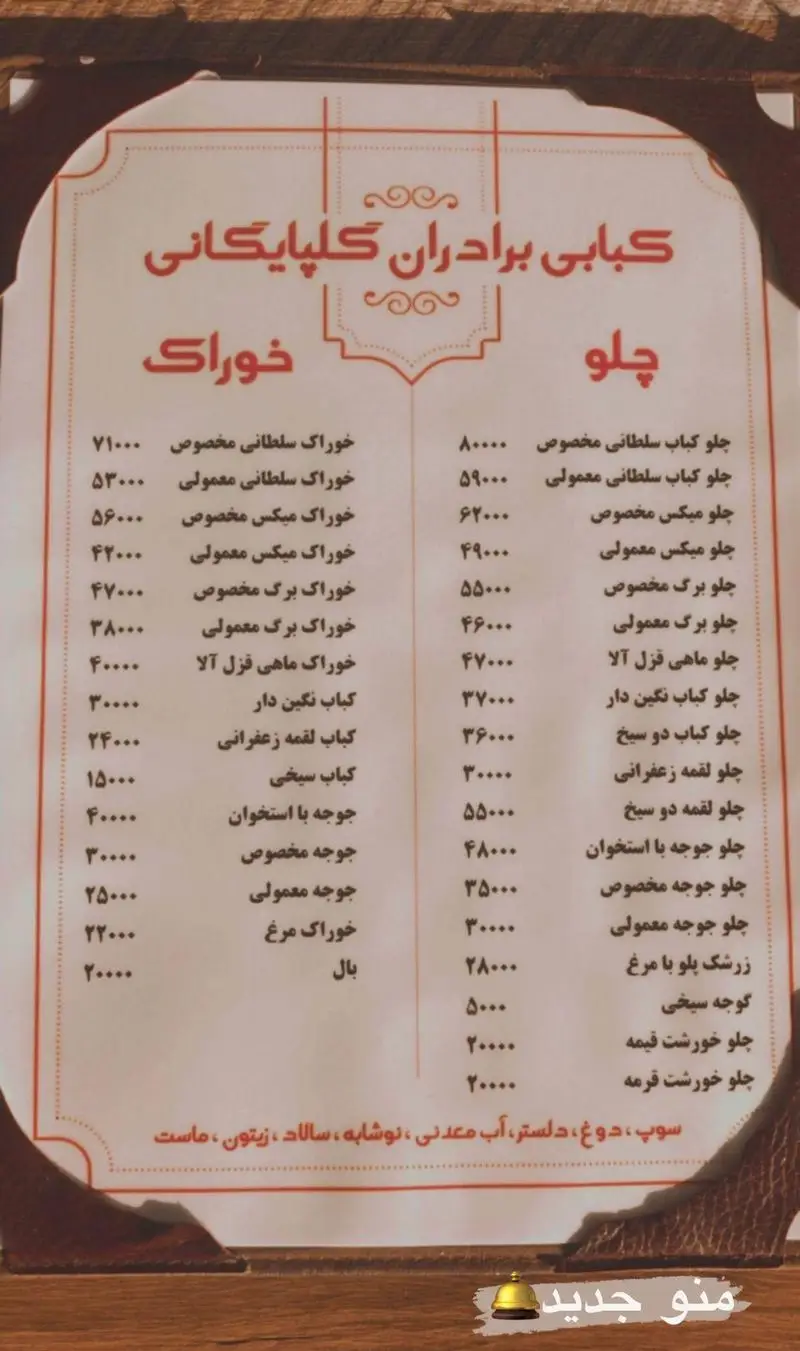 کبابی برادران گلپایگانی
چلو
چلو کباب سلطانی مخصوص ۸۰۰۰۰
چلو کباب سلطانی معمولی ۵۹۰۰۰
چلو میکس مخصوص ۶۲۰۰۰
چلو میکس معمولی ۴۹۰۰۰
چلو برگ مخصوص ۵۵۰۰۰
چلو برگ معمولی ۴۶۰۰۰
چلو ماهی قزل آلا ۴۷۰۰۰
چلو کباب نگین دار ۳۷۰۰۰
چلو کباب دو سیخ ۳۶۰۰۰
چلو لقمه زعفرانی ۳۰۰۰۰
چلو لقمه دو سیخ ۵۵۰۰۰
چلو جوجه با استخوان ۴۸۰۰۰
چلو جوجه مخصوص ۳۵۰۰۰
چلو جوجه معمولی ۳۰۰۰۰
زرشک پلو با مرغ ۲۸۰۰۰
گوجه سیخی ۵۰۰۰
چلو خورشت قیمه ۲۰۰۰۰
چلو خورشت قرمه ۲۰۰۰۰
خوراک
خوراک سلطانی مخصوص ۷۱۰۰۰
خوراک سلطانی معمولی ۵۳۰۰۰
خوراک میکس مخصوص ۵۶۰۰۰
خوراک میکس معمولی ۴۲۰۰۰
خوراک برگ مخصوص ۴۷۰۰۰
خوراک برگ معمولی ۳۸۰۰۰
خوراک ماهی قزل آلا ۴۰۰۰۰
کباب نگین دار ۳۰۰۰۰
کباب لقمه زعفرانی ۲۴۰۰۰
کباب سیخی ۱۵۰۰۰
جوجه با استخوان ۴۰۰۰۰
جوجه مخصوص ۳۰۰۰۰
جوجه معمولی ۲۵۰۰۰
خوراک مرغ ۲۲۰۰۰
بال ۲۰۰۰۰
سوپ، دوغ، دلستر، آب معدنی، نوشابه، سالاد، زیتون، ماست
منو جدید